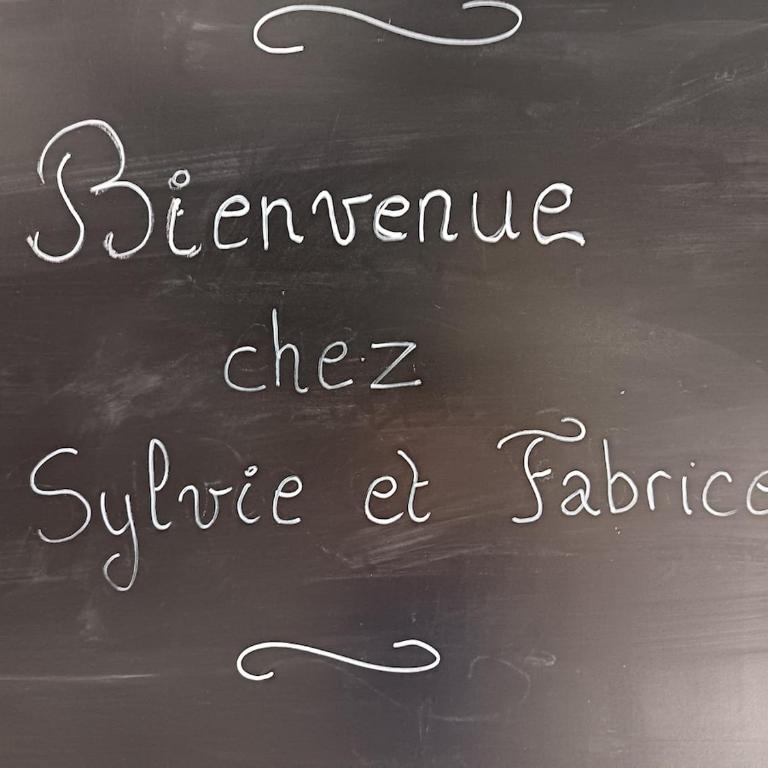 Bienvenue
chez
Sylvie et Fabrice